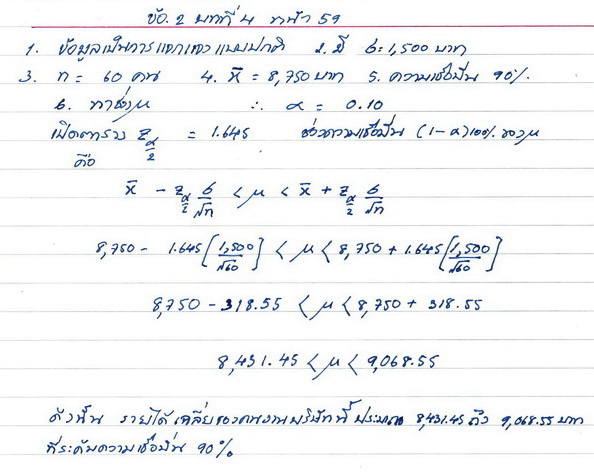 ข้อ. 2 บทที่ 4 หน้า 59
1. ข้อมูลเป็นการแจกแจงแบบปกติ 2. มี σ = 1,500 บาท
3. n = 60 คน 4. x̄ = 8,750 บาท 5. ความเชื่อมั่น 90%.
6. หาช่วง μ ∴ α = 0.10
เปิดตาราง Z α/2 = 1.645 ช่วงความเชื่อมั่น (1-α)100%. ของ μ
คือ
x̄ - Z α/2 σ/√n < μ < x̄ + Z α/2 σ/√n
8,750 - 1.645 [1,500/√60] < μ < 8,750 + 1.645 [1,500/√60]
8,750 - 318.55 < μ < 8,750 + 318.55
8,431.45 < μ < 9,068.55
ดังนั้น รายได้เฉลี่ยของคนงานบริษัทนี้ ประมาณ 8,431.45 ถึง 9,068.55 บาท
ที่ระดับความเชื่อมั่น 90%.